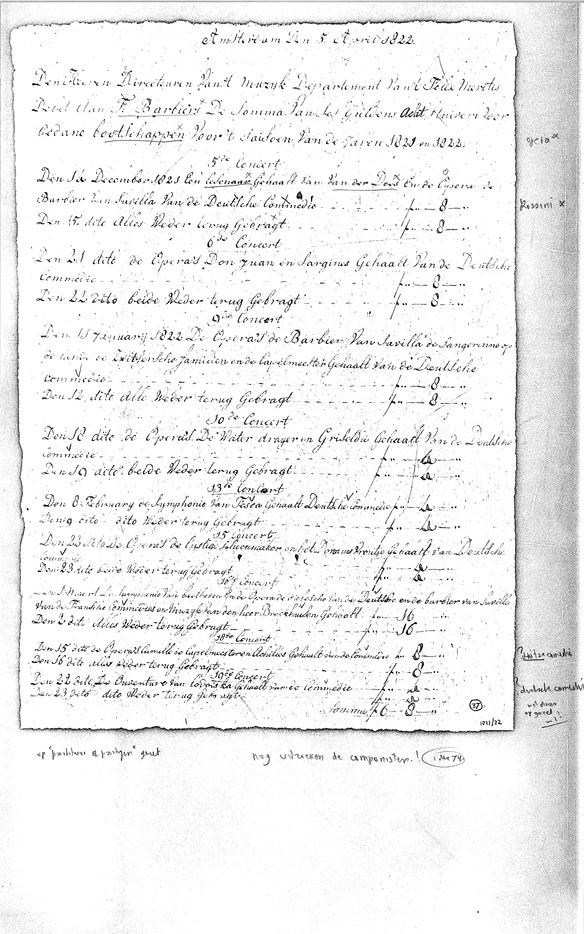 Amsterdam Den 5 April 1822
Den Heeren Directeuren Van't Muzyk Departement Van't Felix Meretis
Debit Aan F. Barbiers De Somma Van Ses Guldens Acht Stuivers Voor
Gedane bootschappen Voor't Saisoen Van de Jaren 1821 en 1822
5de Concert
Den 14 December 1821 Een Gehaalt Van Van der Does En de Opera de
Barbier Van Savilla Van de Deutsche Commedie f „ 8 „
Den 15 dito Alles Weder terug Gebragt f „ 8 „
6de Concert
Den 21 dito de Opera's Don Juan en Sargines Gehaalt Van de Deutsche
Commedie f „ 8 „
Den 22 dito beide Weder terug Gebragt f „ 8 „
9de Concert
Den 11 Januarij 1822 De Opera's de Barbier Van Savilla de Sangerinne op
de Zwitsersche Familien en de Capelmeester Gehaalt Van de Deutsche
Commedie f „ 8 „
Den 12 dito Alle Weder terug Gebragt f „ 8 „
10de Concert
Den 18 dito de Opera's De Water drager en Griseldis Gehaalt Van de Deutsche
Commedie f „ 4 „
Den 19 dito beide Weder terug Gebragt f „ 4 „
13de Concert
Den 8 February de Symphonie Van Fesca Gehaalt Deutsche Commedie f „ 4 „
Den 9 dito dito Weder terug Gebragt f „ 4 „
15 Concert
Den 22 dito De Opera's de Lustige Schoenmaker en het Donau Vrouwje Gehaalt van Deutsche
Comm
Den 23 dito beide Weder terug Gebragt f „ 4 „
16de Concert
Den 1 Maart de Symphonie Van Beethoven En de Opera de Van de Deutsche en de barbier van Savilla
Van de Fransche Commedie en Muzyk Van den heer Brockhuizen Gehaalt f „ 16
Den 2 dito Alles Weder terug Gebragt f „ 16
18de Concert
Den 15 dito de Opera's Camilla de Capelmeester en Achilles Gehaalt van de Commedie f „ 8
Den 16 dito Alles Weder terug Gebragt f „ 8
19de Concert
Den 22 dito De Ouverture van Lodoiska Gehaalt van de Commedie f „ 4
Den 23 dito dito Weder terug Gebragt f „ 4
Somma f 6 „ 8 „
37
1821/22
Rossini x
deutsche comedie
op "partituur & partijen" gezet
nog uitzoeken de componisten!